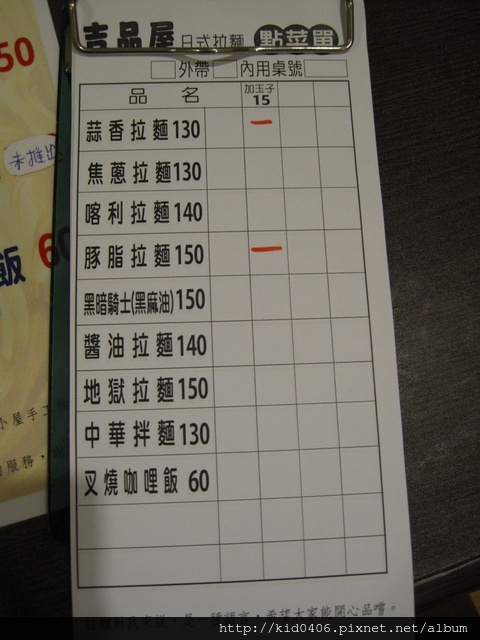 吉品屋 日式拉麵 點菜單
外帶 內用桌號
品名 加玉子 15
蒜香拉麵 130
焦蔥拉麵 130
喀利拉麵 140
豚脂拉麵 150
黑暗騎士(黑麻油) 150
醬油拉麵 140
地獄拉麵 150
中華拌麵 130
叉燒咖哩飯 60
希望大家能開心品嚐。
50
未推出
飯 60
小屋手工
服務，
http://kid0406.pixnet.net/album